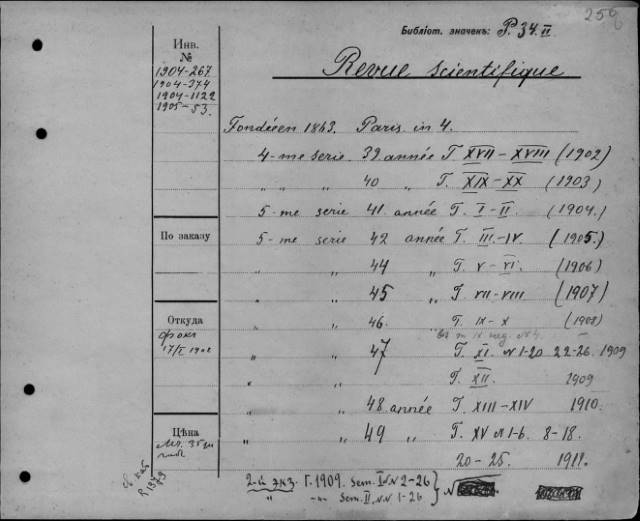 256
Библіот. значекъ: P. 34 II
Инв. №
1904-267
1904-374
1904-1122
1905-53.
Revue scientifique
Fondée en 1863. Paris in 4.
4-me serie 39 année T. XVII-XVIII (1902)
" " " 40 " T. XIX-XX (1903)
5-me serie 41 année T. I-II. (1904.)
По заказу
5-me serie 42 année T. III.-IV. (1905.)
" " 44 " T. V-VI. (1906)
" " 45 " T. VII-VIII (1907)
Откуда
17/I 1902
" " 46. T. IX-X (1908)
" " 47 T. XI. N 1-20. 22-26. 1909
" " T. XII. 1909
" " 48 année T. XIII-XIV 1910.
Цѣна
" " 49 " T. XV N 1-6. 8-18.
20-25. 1911.
2-й экз. T. 1909. Sem. I NN 2-26
Sem. II NN 1-26